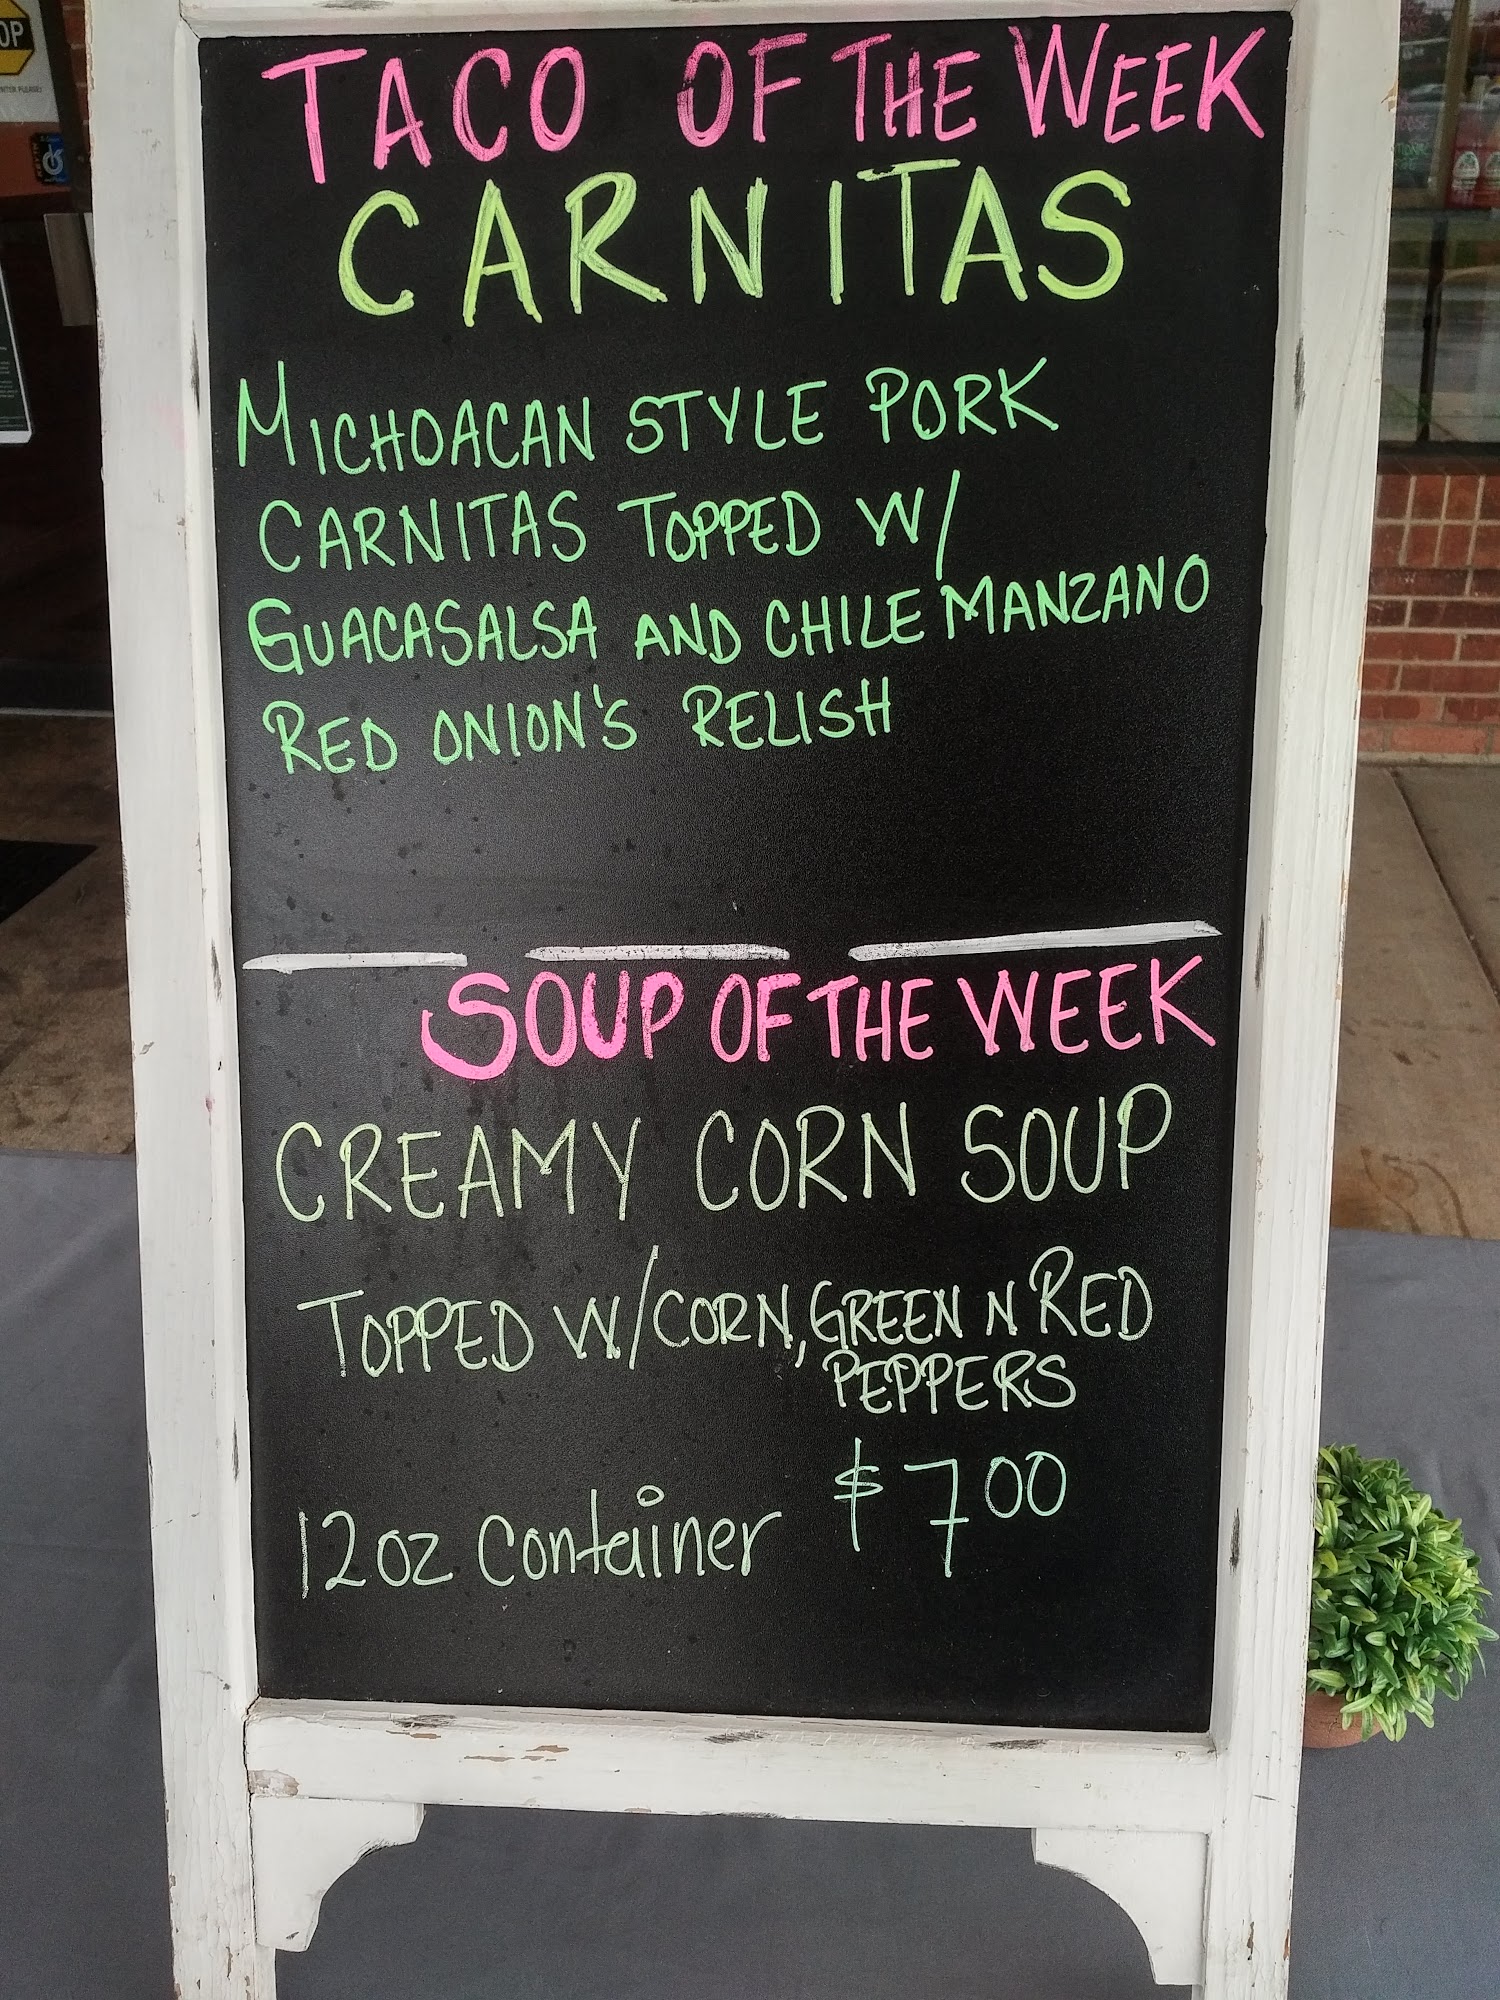 OP
NTER PLEASE!
TACO OF THE WEEK
CARNITAS
MICHOACAN STYLE PORK
CARNITAS TOPPED W/
GUACASALSA AND CHILE MANZANO
RED ONION'S RELISH
SOUP OF THE WEEK
CREAMY CORN SOUP
TOPPED W/CORN, GREEN N RED
PEPPERS
$7.00
12oz Container